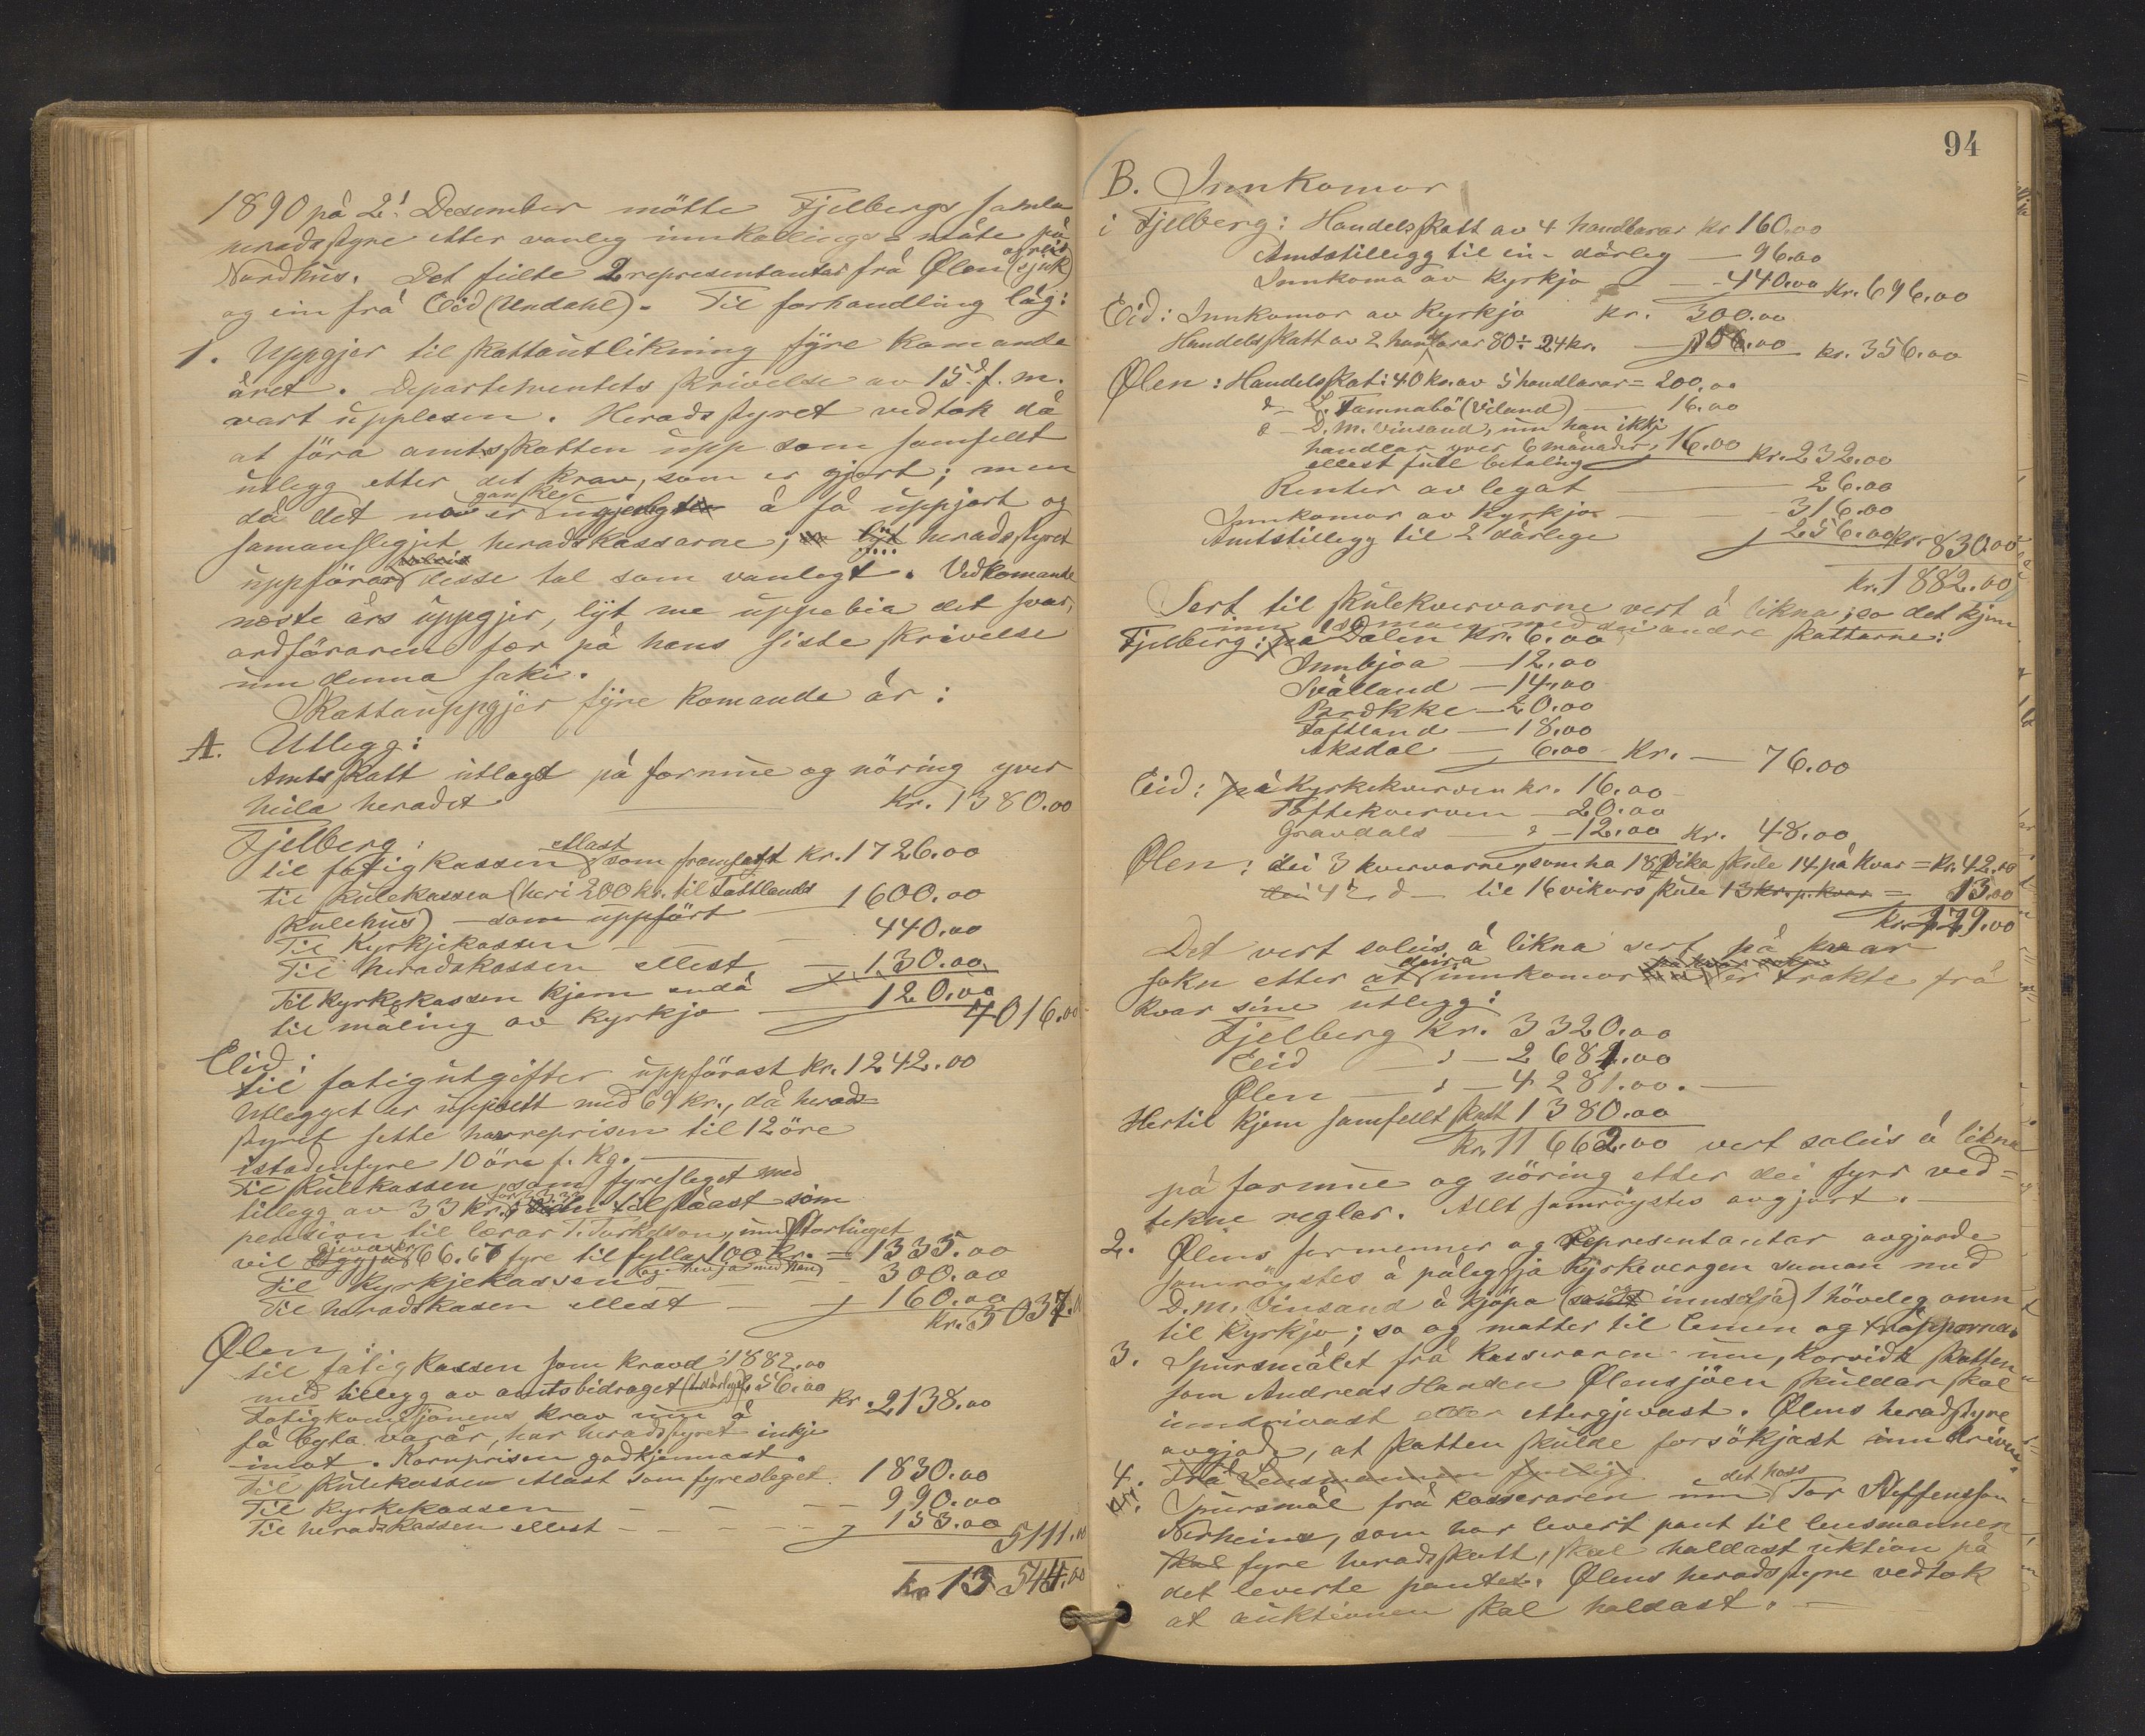 1890 på 2! Desember mötte Fjelbergs samla
heradsstyre etter vanleg innkallings-måte på
Nordhus. Det fülte 2 representantar frå Ølen (sjuk)
og ein frå Eid (Undahl). Til forhandling låg:
1. Uppgjer til skattautlikning fyre komande
året. Departementets skrivelse av 15d. f. m.
vart upplesen. Heradsstyret vedtok då
at föra amtsskatten upp som samfellt
utlegg etter det krav, som er gjort; men
då det no er ganske å få uppjort og
samanslegjet heradskassarne, lyt heradsstyret
uppföra desse tal som vanlegt. Vedkomande
neste års uppgjer, lyt me uppebia det svar,
ordföraren fær på hans siste skrivelse
um denna saki.
Skattauppgjer fyre komande år:
A. Utlegg:
Amtsskatt utlagt på formue og nöring yver
heila heradet kr. 1380.00
Fjelberg:
til fatigkassen ellast som framsatt kr. 1726.00
til skulekassen (heri 200 kr. til Tattlands
skulehus) - som uppfört 1600.00
Til Kyrkjekassen 440.00
Til heradskassen ellest 130.00
Til kyrkekassen kjem endå
til måling av kyrkjo 120.00
4016.00
Eid:
til fatigutgifter uppförast kr. 1242.00
Utlegget er uppsett med 69 kr., då herads-
styret sette havreprisen til 12 öre
istadenfyre 10 öre f. kg.
Til skulekassen som fyresleget med
tillegg av 33 kr. for 33.33 tilståast som
pension til lærar T. Torkelson, um Stortinget
vil gjeva 66.67 fyre til fylla 100 kr. = 1335.00
Til Kyrkjekassen 300.00
Til heradskasen ellest 160.00
kr. 3037.00
Ølen:
til fatigkassen som kravd 1882.00
med tillegg av amtsbidraget (2 dårlege) 256.00 kr. 2138.00
Fatigkommisjonens krav um å
få byta varar, har heradsstyret inkje
imot. Kornprisen godkjennast.
Til skulekassen ellast som fyresleget 1830.00
Til Kyrkekassen 990.00
Til heradskassen ellest 153.00
5111.00
kr 13 544.00
94
B. Innkomor
i Fjelberg: Handelsskatt av 4 handlarar kr 160.00
Amtstillegg til ein dårleg 96.00
Innkoma av Kyrkjo 440.00 kr. 696.00
Eid: Innkomor av Kyrkjo kr. 300.00
Handelsskatt av 2 handlarar 80 ÷ 24 kr. 56.00 kr. 356.00
Ølen: Handelsskatt: 40 kr. av 5 handlarar = 200.00
L. Tamnabö (Viland) 16.00
D. M. Vinsand, um han ikkje
handlar yver 6 månader, 16.00 kr. 232.00
ellest full betaling
Renter av legat 26.00
Innkomor av Kyrkjo 316.00
Amtstillegg til 2 dårlege 256.00 kr. 830.00
kr. 1882.00
Sert til skulekvervarne vert å likna, so det kjem
inn saman med dei andre skattarne:
Fjelberg: på Dalen kr. 6.00
Innbjoa 12.00
Svålland 14.00
Brekke 20.00
Tattland 18.00
Aksdal 6.00 kr. 76.00
Eid: på Kyrkekverven kr. 16.00
Töftekverven 20.00
Gravdals 12.00 kr. 48.00
Ølen: dei 3 kvervarne, som ha 18 vika skule 14 på kvar = kr. 42.00
dei 4de til 16 vikors skule 13 kr. p. kvar = 13.00
kr. 179.00
Det vert soleis å likna sert på kvar
sokn etter at deira innkomor er trakte frå
kvar sine utlegg:
Fjelberg kr. 3320.00
Eid 2681.00
Ølen 4281.00.
Hertil kjem samfellt skatt 1380.00
kr. 11662.00 vert soleis å likna
på formue og nöring etter dei fyrr ved-
tekne reglar. Allt samröystes avgjort.
2. Ølens formenner og Representantar avgjorde
samröystes å påleggja kyrkevergen saman med
D. M. Vinsand å kjöpa (innselja) 1 höveleg omn
til kyrkjo; so og matter til lemen og tråpporna.
3. Spursmålet frå Kasseraren um, korvidt skatten
som Andreas Hansen Ølensjöen skuldar skal
inndrivast elder ettergjevast. Ølens heradsstyre
avgjode, at skatten skulde forsökjast inndriven.
4. Frå Lensmannen
Spursmål frå kasseraren um det hass Tor Steffensson
Nerheim, som har levert pant til lensmannen
fyre heradsskatt, skal haldast uktion på
det leverte pantet. Ølens heradsstyre vedtok
at auktionen skal haldast.